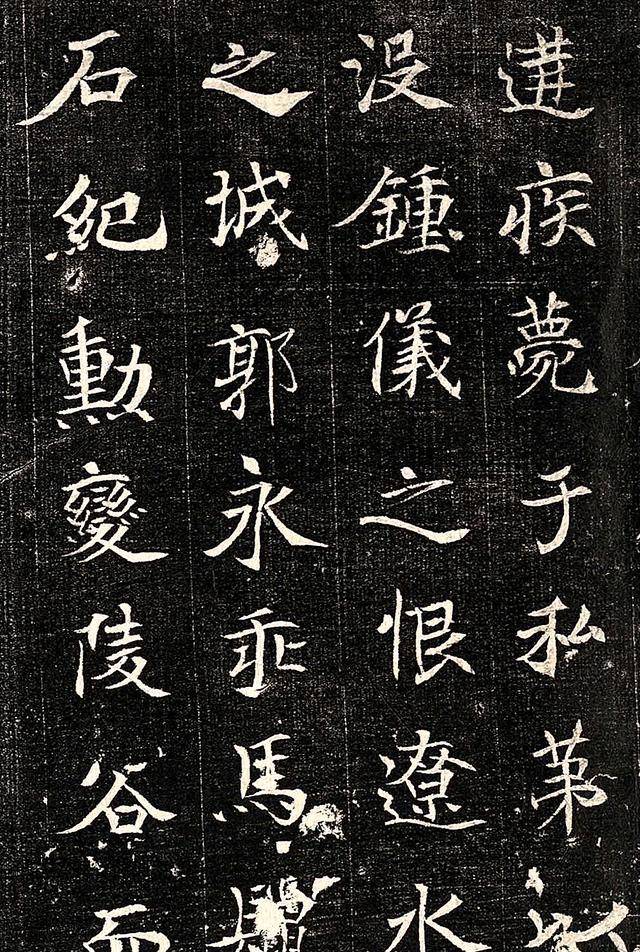 遘疾薨于私第
没鍾儀之恨遼水
之城郭永乖馬
石紀勳變陵谷而